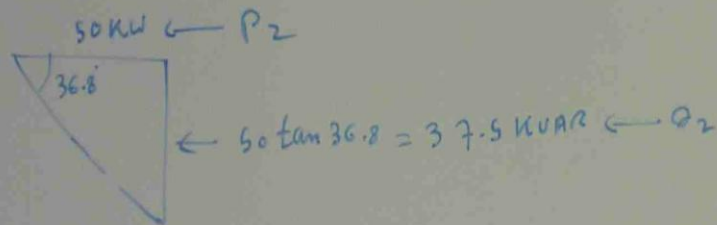 50KW ← P2
36.8°
← 50 tan 36.8 = 37.5 KVAR ← Q2